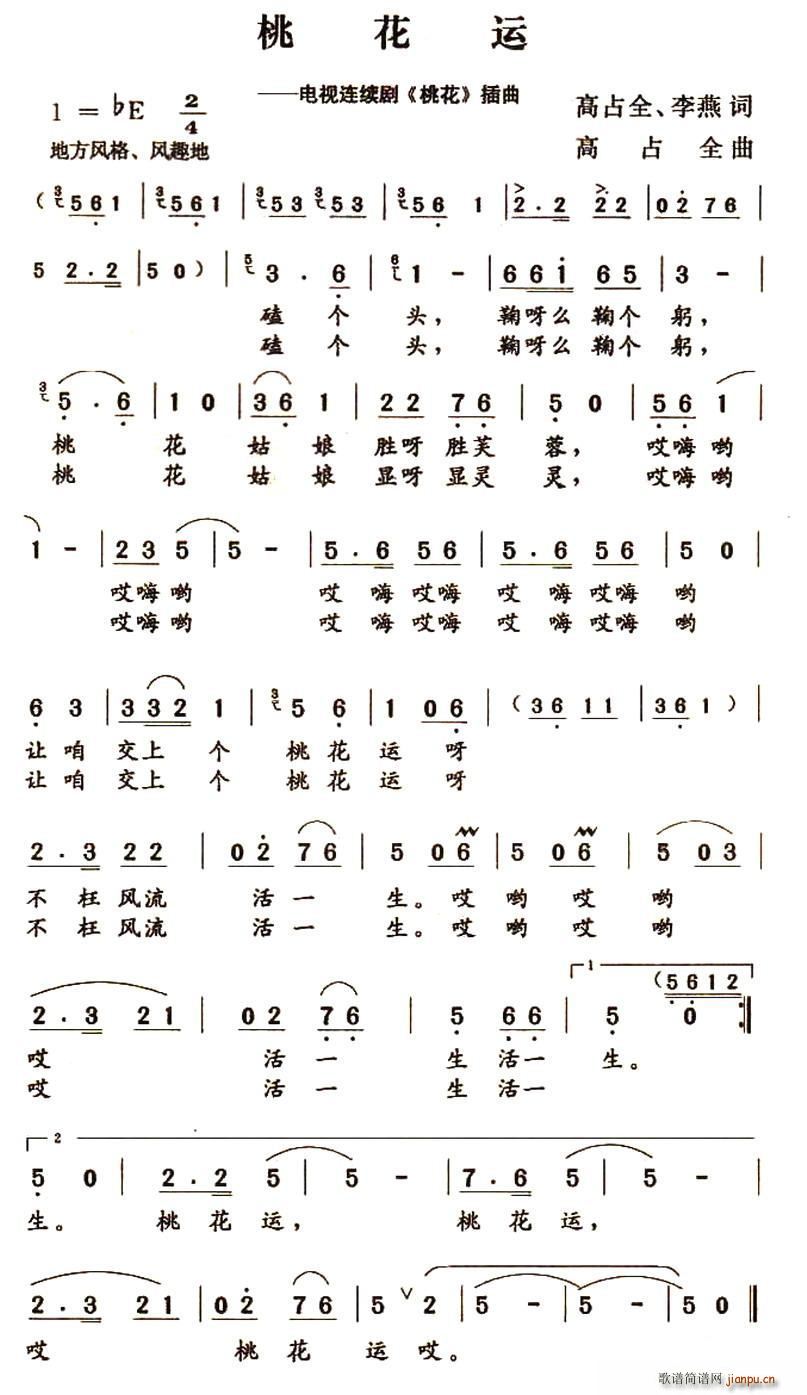 桃 花 运
——电视连续剧《桃花》插曲
1 = ♭E 2/4
高占全、李燕 词
地方风格、风趣地
高 占 全 曲
( 3 5 6 1 | 3 5 6 1 | 3 5 3 3 5 3 | 3 5 6 1 | 2 . 2 2 2 | 0 2 7 6 |
5 2 . 2 | 5 0 ) | 5 3 . 6 | 6 1 - | 6 6 1 6 5 | 3 - |
磕 个 头, 鞠呀么 鞠个 躬,
磕 个 头, 鞠呀么 鞠个 躬,
3 5 . 6 | 1 0 | 3 6 1 | 2 2 7 6 | 5 0 | 5 6 1 |
桃 花 姑 娘 胜呀 胜芙 蓉, 哎嗨哟
桃 花 姑 娘 显呀 显灵 灵, 哎嗨哟
1 - | 2 3 5 | 5 - | 5 . 6 5 6 | 5 . 6 5 6 | 5 0 |
哎嗨 哟 哎 嗨 哎嗨 哎 嗨 哎嗨 哟
哎嗨 哟 哎 嗨 哎嗨 哎 嗨 哎嗨 哟
6 3 | 3 3 2 1 | 3 5 6 | 1 0 6 | ( 3 6 1 1 | 3 6 1 ) |
让 咱 交上 个 桃 花 运 呀
让 咱 交上 个 桃 花 运 呀
2 . 3 2 2 | 0 2 7 6 | 5 0 6 | 5 0 6 | 5 0 3 |
不 枉 风流 活 一 生。哎 哟 哎 哟
不 枉 风流 活 一 生。哎 哟 哎 哟
2 . 3 2 1 | 0 2 7 6 | 5 6 6 | 1 5 0 ( 5 6 1 2 :‖
哎 活 一 生 活一 生。
哎 活 一 生 活一
2
5 0 | 2 . 2 5 | 5 - | 7 . 6 5 | 5 - |
生。 桃 花 运, 桃 花 运,
2 . 3 2 1 | 0 2 7 6 | 5 ∨ 2 | 5 - | 5 - | 5 0 ‖
哎 桃 花 运 哎。
歌谱简谱网
jianpu.cn